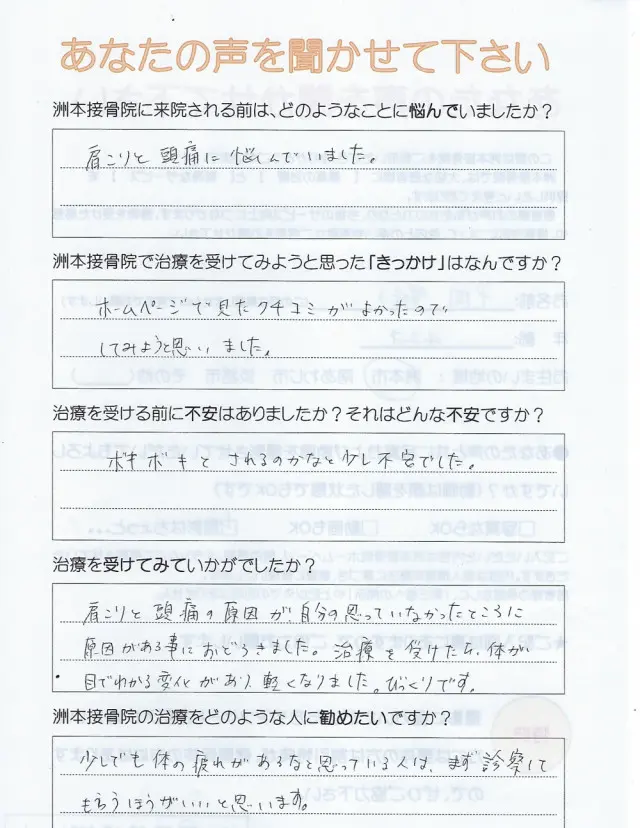 あなたの声を聞かせて下さい
洲本接骨院に来院される前は、どのようなことに悩んでいましたか？
肩こりと頭痛に悩んでいました。
洲本接骨院で治療を受けてみようと思った「きっかけ」はなんですか？
ホームページで見たクチコミがよかったので
してみようと思いました。
治療を受ける前に不安はありましたか？それはどんな不安ですか？
ボキボキとされるのかなと少し不安でした。
治療を受けてみていかがでしたか？
肩こりと頭痛の原因が、自分の思っていなかったところに
原因がある事におどろきました。治療を受けたら、体が
目でわかる変化があり軽くなりました。びっくりです。
洲本接骨院の治療をどのような人に勧めたいですか？
少しでも体の疲れがあるなと思っている人は、まず診察して
もらうほうがいいと思います。